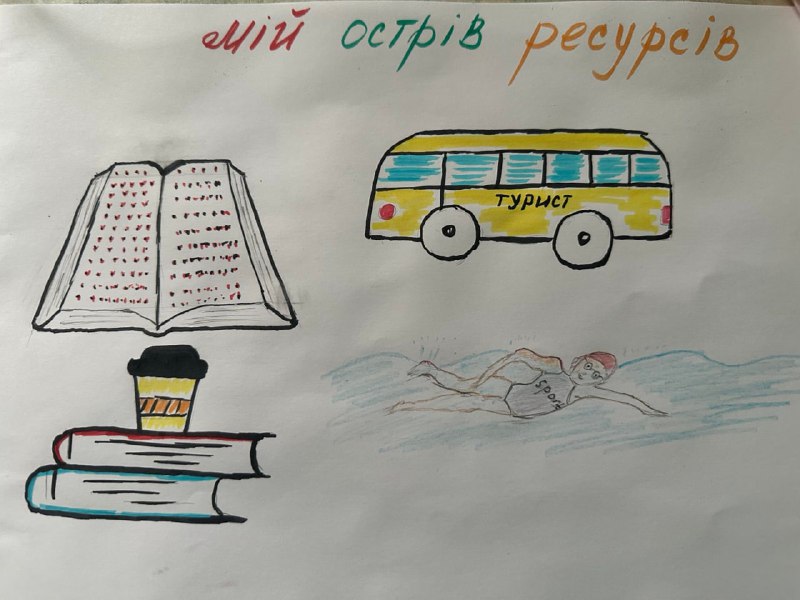 мій острів ресурсів
ТУРИСТ
sport